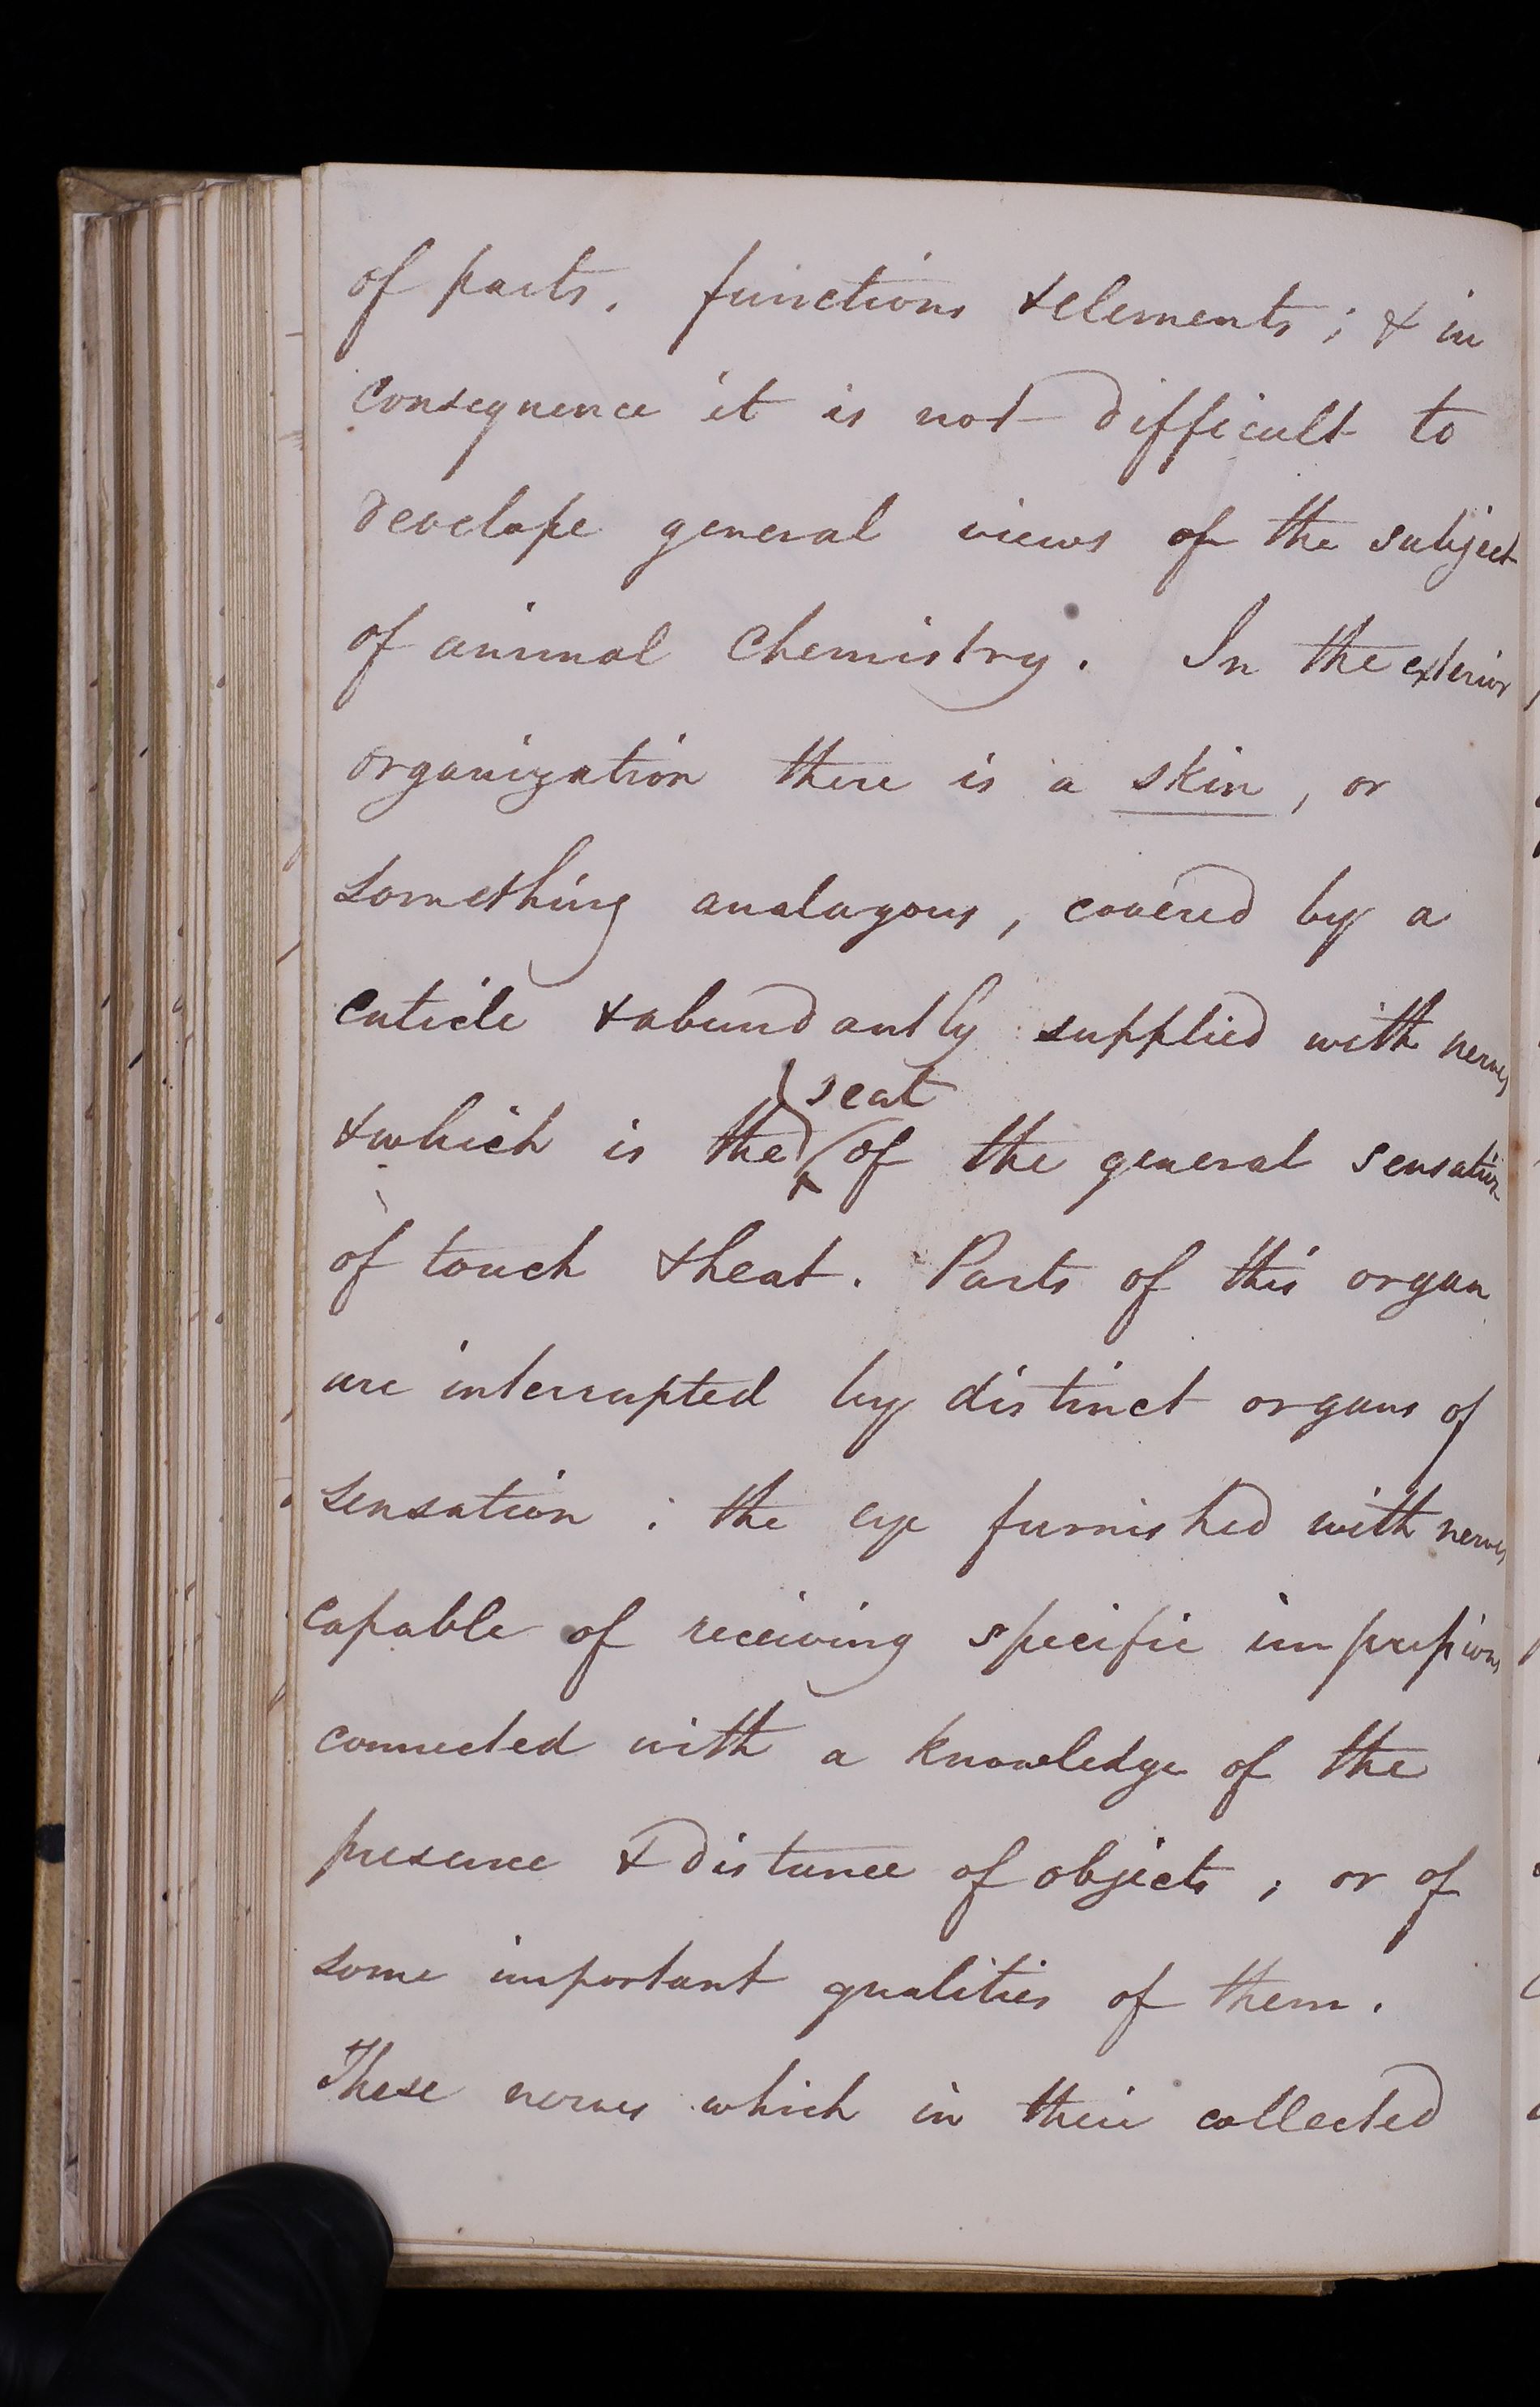 of parts, functions & elements; & in
consequence it is not difficult to
develope general views of the subject
of animal Chemistry. In the exterior
organization there is a skin, or
something analagous, covered by a
cuticle & abundantly supplied with nerves
seat
& which is the of the general sensation
of touch & heat. Parts of this organ
are interrupted by distinct organs of
sensation: the eye furnished with nerves
capable of receiving specific impressions
connected with a knowledge of the
presence & distance of objects; or of
some important qualities of them.
These nerves which in their collected